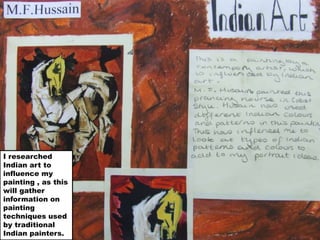 M.F.Hussain
Indian Art
This is a painting by a
contempary artist, which
is influenced by Indian
art.
M.F. Husain painted this
prancing horse in
She Husain has used
different Indian colours
and patterns in this painting
This has influenced me to
look at types of Indian
patterns and colours to
add to my portrait ideas.
I researched
Indian art to
influence my
painting , as this
will gather
information on
painting
techniques used
by traditional
Indian painters.